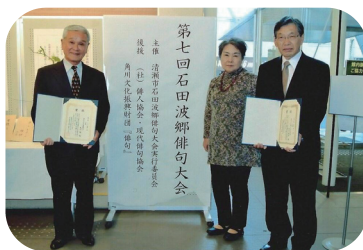 第七回石田波郷俳句大会
主催 清瀬市石田波郷俳句大会実行委員会
後援 (社)俳人協会・現代俳句協会
角川文化振興財団『俳句』